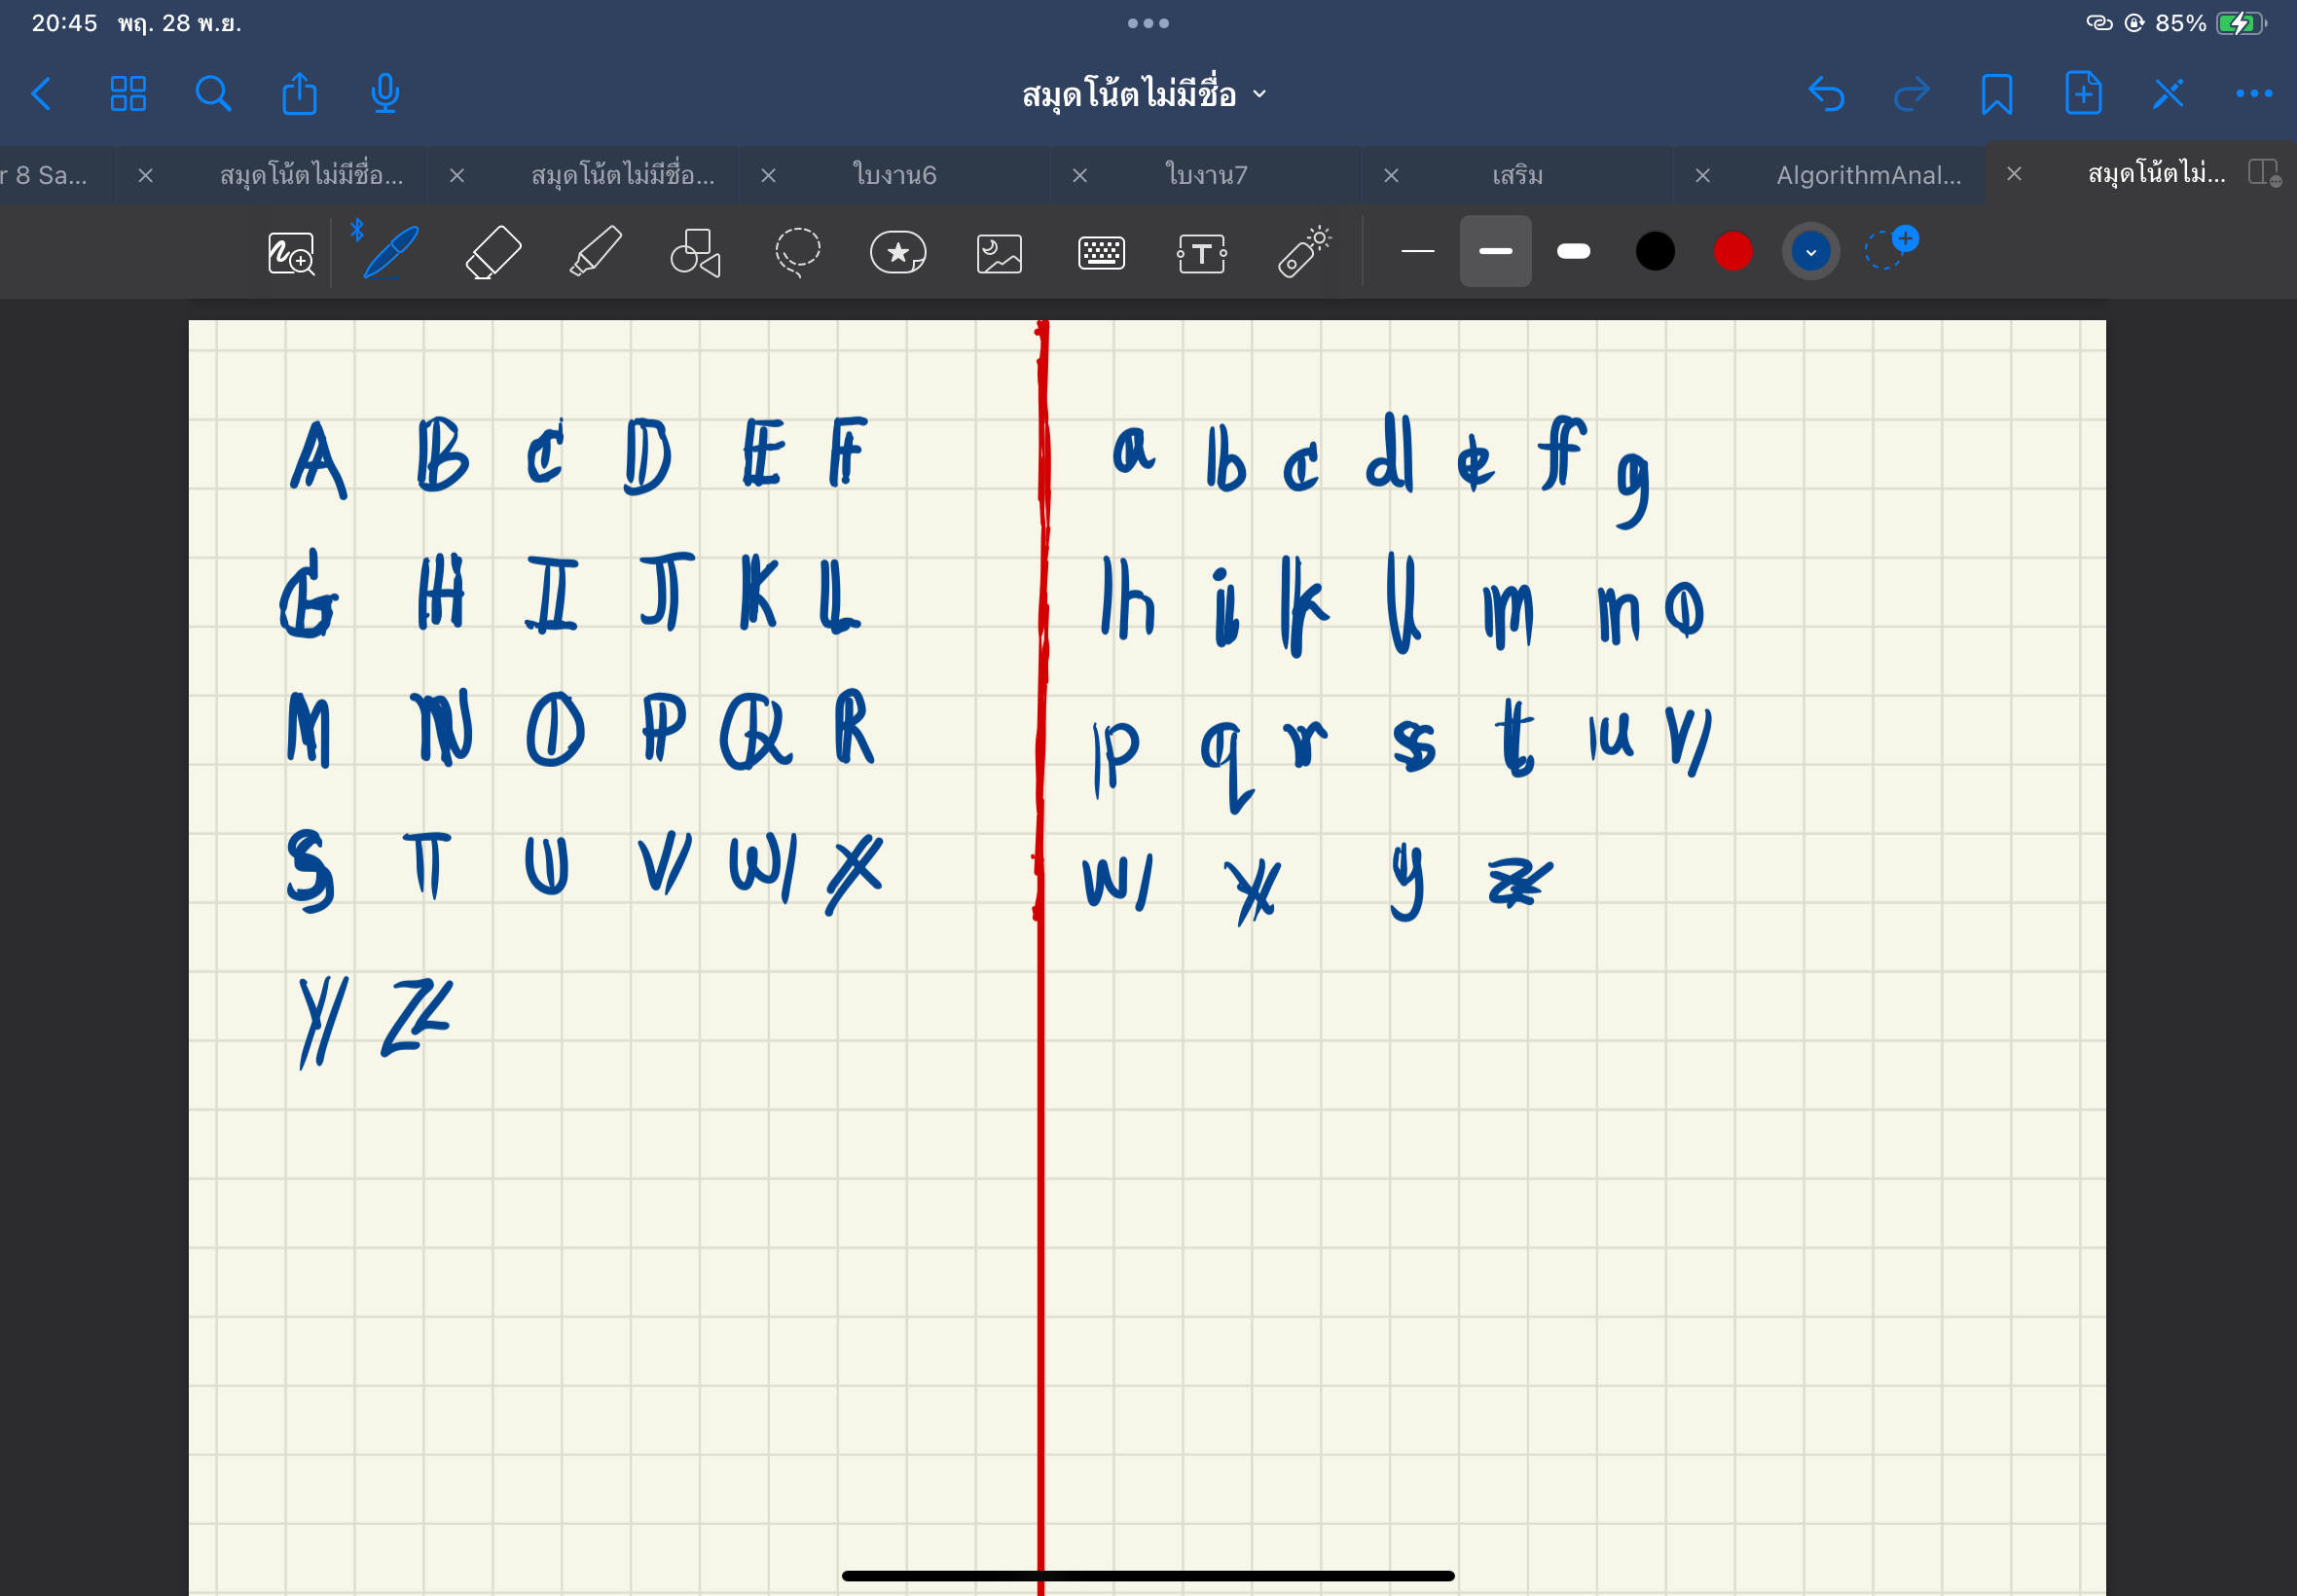 20:45 พฤ. 28 พ.ย. 85%
สมุดโน้ตไม่มีชื่อ
r 8 Sa... สมุดโน้ตไม่มีชื่อ... สมุดโน้ตไม่มีชื่อ... ใบงาน6 ใบงาน7 เสริม AlgorithmAnal... สมุดโน้ตไม่...
T
A B C D E F
G H I J K L
M N O P Q R
S T U V W X
Y Z
a b c d e f g
h i k l m n o
p q r s t u v
w x y z